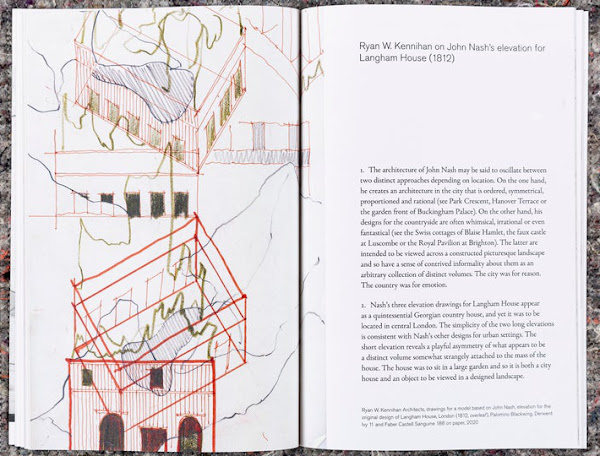 Ryan W. Kennihan on John Nash's elevation for
Langham House (1812)
1. The architecture of John Nash may be said to oscillate between
two distinct approaches depending on location. On the one hand,
he creates an architecture in the city that is ordered, symmetrical,
proportioned and rational (see Park Crescent, Hanover Terrace or
the garden front of Buckingham Palace). On the other hand, his
designs for the countryside are often whimsical, irrational or even
fantastical (see the Swiss cottages of Blaise Hamlet, the faux castle
at Luscombe or the Royal Pavilion at Brighton). The latter are
intended to be viewed across a constructed picturesque landscape
and so have a sense of contrived informality about them as an
arbitrary collection of distinct volumes. The city was for reason.
The country was for emotion.
2. Nash's three elevation drawings for Langham House appear
as a quintessential Georgian country house, and yet it was to be
located in central London. The simplicity of the two long elevations
is consistent with Nash's other designs for urban settings. The
short elevation reveals a playful asymmetry of what appears to be
a distinct volume somewhat strangely attached to the mass of the
house. The house was to sit in a large garden and so it is both a city
house and an object to be viewed in a designed landscape.
Ryan W. Kennihan Architects, drawings for a model based on John Nash, elevation for the
original design of Langham House, London (1812, overleaf). Palomino Blackwing, Derwent
Ivy 11 and Faber Castell Sanguine 188 on paper, 2020